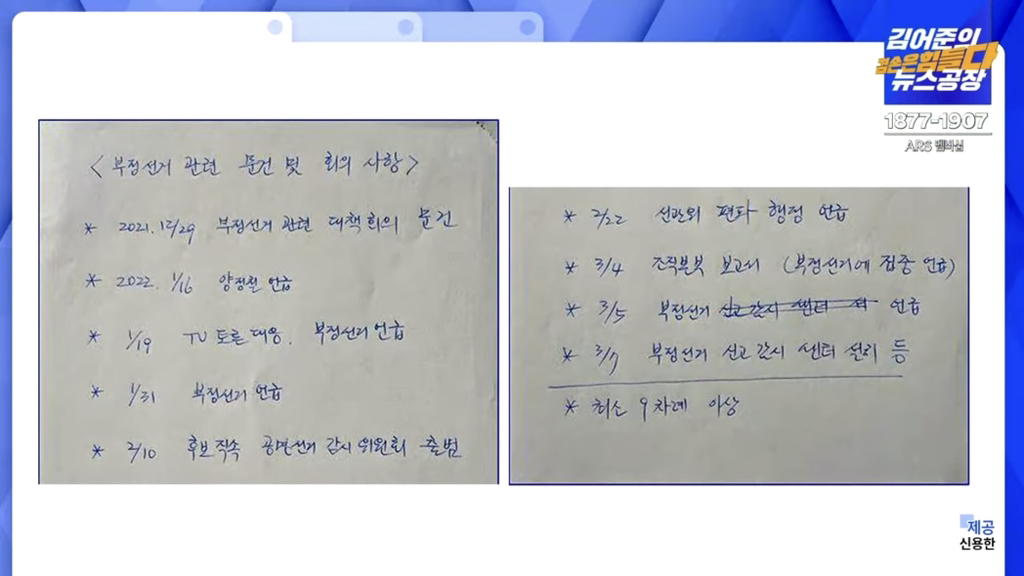 김어준의
겸손은힘들다
뉴스공장
1877-1907
ARS 멤버십
<부정선거 관련 문건 및 회의 사항>
* 2021. 12/29 부정선거 관련 대책회의 문건
* 2022. 1/16 양정철 언급
* 1/19 TV 토론 대응. 부정선거 언급
* 1/31 부정선거 언급
* 2/10 후보직속 공명선거 감시 위원회 출범
* 2/22 선관위 편파 행정 언급
* 3/4 조직본부 보고시 (부정선거에 집중 언급)
* 3/5 부정선거 신고 감시 센터 언급
* 3/7 부정선거 신고 감시 센터 설치 등
* 최소 9차례 이상
제공
신용한